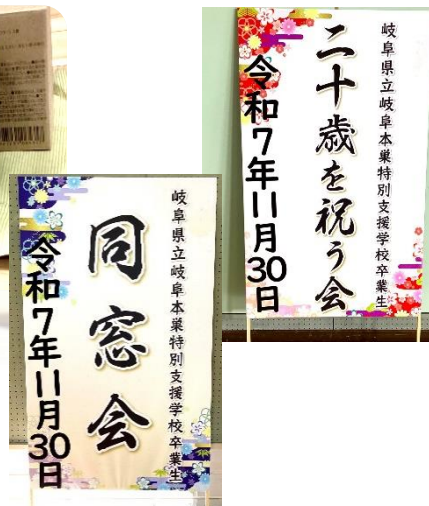 岐阜県立岐阜本巣特別支援学校卒業生
二十歳を祝う会
令和7年11月30日
岐阜県立岐阜本巣特別支援学校卒業生
同窓会
令和7年11月30日